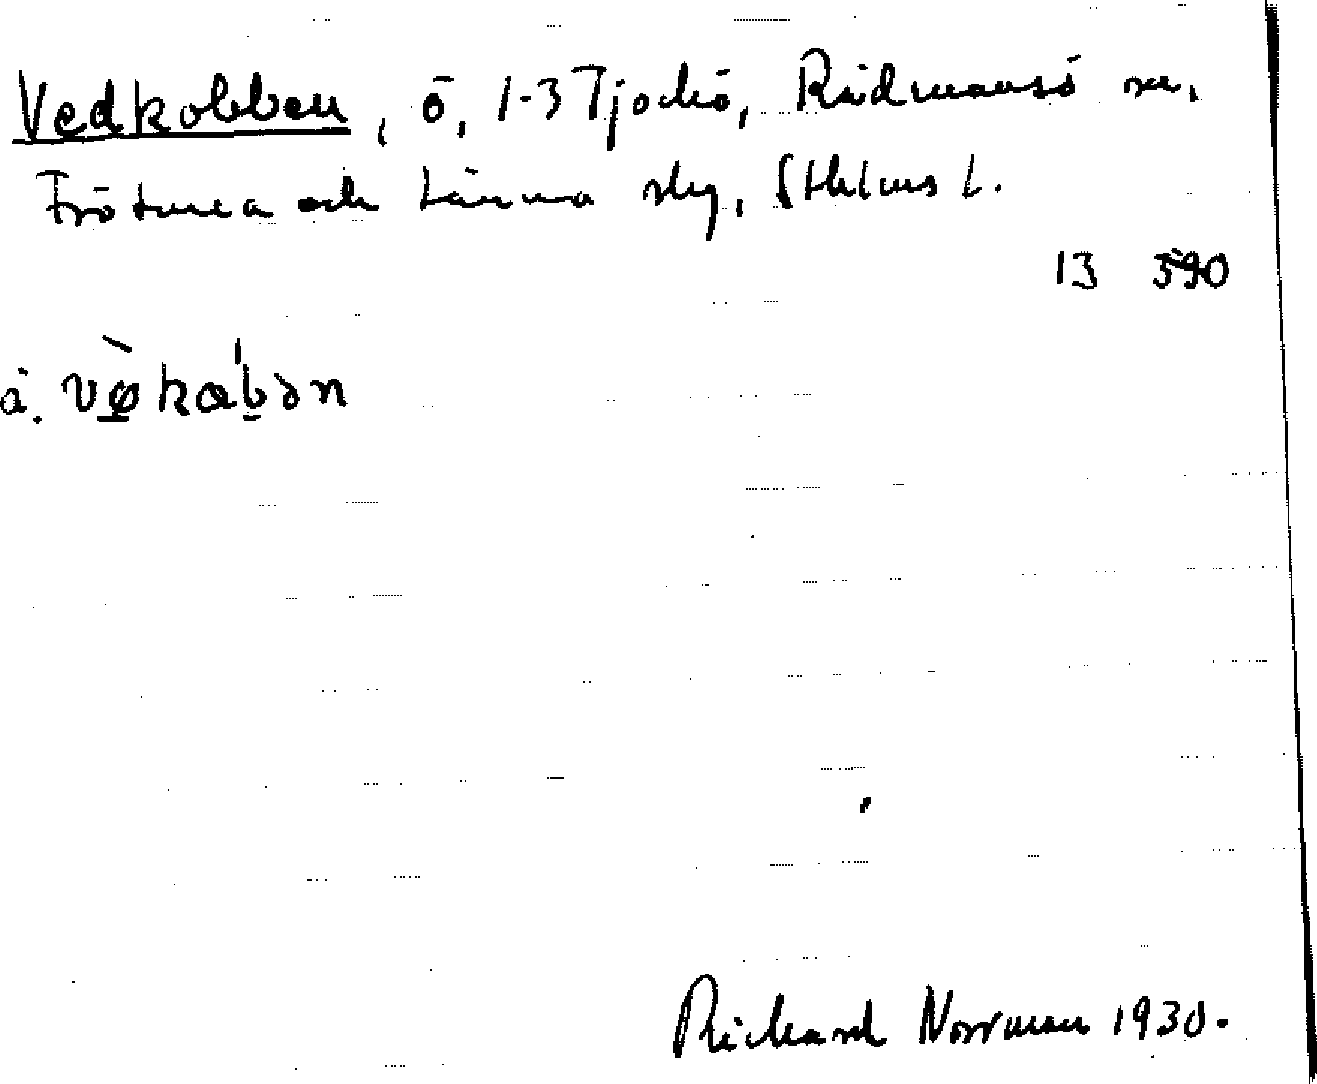 Vedkobben, ö, 1-3 Tjockö, Rådmansö sn,
Frötuna och Länna slg, Sthlms l.
13 590
å. vø̀kabən
Rickard Norrman 1930.